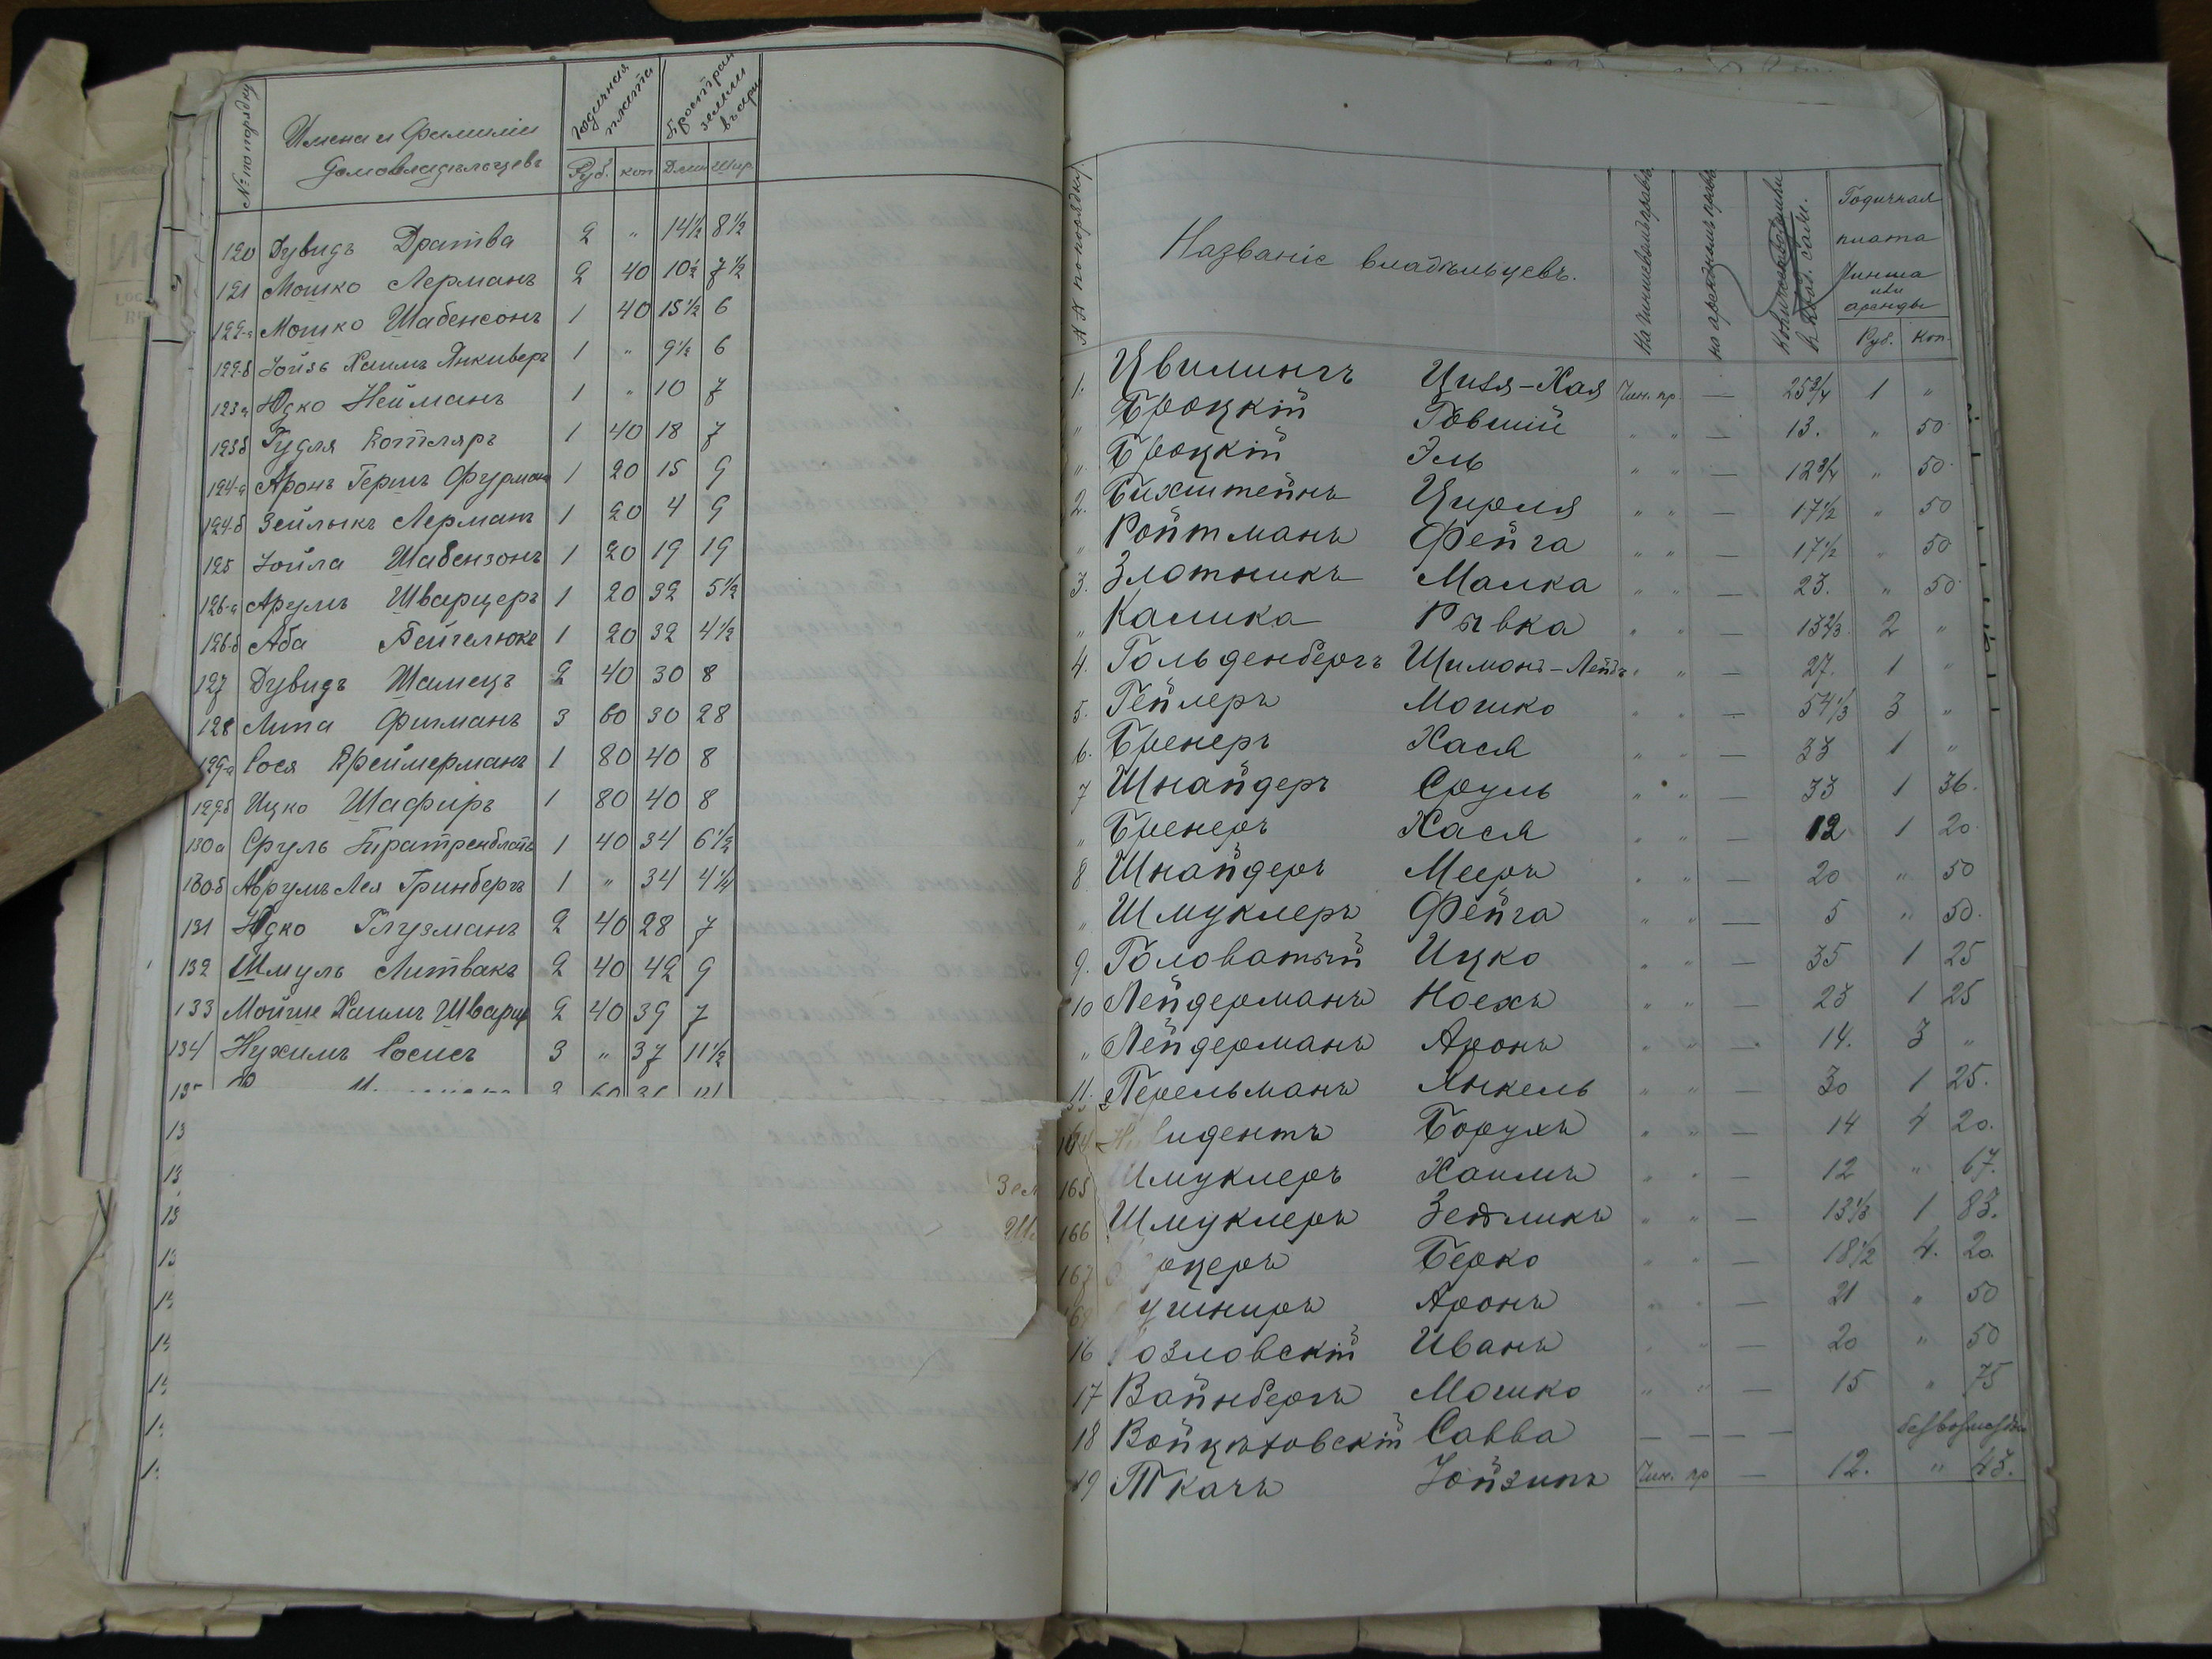 № по порядку
Имена и Фамиліи
Домовладѣльцевъ
Годичная
плата
Простран
земли
въ арш
Руб. коп Дли Шир
120 Дувидъ Дратва 2 " 14½ 8½
121 Мошко Лерманъ 2 40 10½ 7½
122-а Мошко Шабенсонъ 1 40 15½ 6
122-б Хаимъ 1 " 9½ 6
123а Юдко Нейманъ 1 " 10 7
123б Гудля Котляръ 1 40 18 7
124-а Аронъ Гершъ Фурманъ 1 20 15 9
124-б Зейликъ Лерманъ 1 20 4 9
125 Іойла Шабензонъ 1 20 19 19
126-а Арумъ Шварцеръ 1 20 32 5½
126-б Аба 1 20 32 4½
127 Дувидъ Шамецъ 2 40 30 8
128 Липа Фигманъ 3 60 30 28
129-а Сося Креймерманъ 1 80 40 8
129б Ицко Шафиръ 1 80 40 8
130а Сруль 1 40 34 6½
130-б Аврумъ Лея Гринбергъ 1 " 34 4¼
131 Юдко Глузманъ 2 40 28 7
132 Шмуль Литвакъ 2 40 42 9
133 Мойше Хаимъ Шварц 2 40 39 7
134 Нухимъ 3 " 37 11½
135
13
13
13
13
Зем
Шм
№ № по порядку
Названіе владѣльцевъ.
На чиншевомъ правѣ
на арендномъ правѣ
Годичная
плата
Чинша
или
аренды
Руб. Коп.
1. Цвилингъ Цися-Хая Чин. пр. — 25¾ 1 "
" Броцкій Говшій " " — 13. " 50
" Броцкій Эль " " — 12¾ " 50
2. Бихштейнъ Цирля " " — 17½ " 50
" Ройтманъ Фейга " " — 17½ " 50
3. Злотникъ Малка " " — 23. " 50
" Калика Рывка " " — 13⅔ 2 "
4. Гольденбергъ Шимонъ-Лейбъ " " — 27. 1 "
5. Гейлеръ Мошко " " — 54⅓ 3 "
6. Бренеръ Хася " " — 33 1 "
7 Шнайдеръ Сруль " " — 33 1 36.
" Бренеръ Хася " " — 12 1 20.
8 Шнайдеръ Мееръ " " — 20 " 50
" Шмуклеръ Фейга " " — 5 " 50.
9. Головатый Ицко " " — 35 1 25
10 Лейдерманъ Ноехъ " " — 23 1 25
" Лейдерманъ Аронъ " " — 14. 3 "
11. Перельманъ Янкель " " — 30 1 25.
164 идентъ Борухъ " " — 14 4 20.
165 Шмуклеръ Хаимъ " " — 12 " 67.
166 Шмуклеръ Зейликъ " " — 13⅓ 1 83.
167 рцеръ Берко " " — 18½ 4. 20.
ушниръ Аронъ " " — 21 " 50
16 озловскій Иванъ " " — 20 " 50
17 Вайнбергъ Мошко " " — 15 " 75
18 Войцѣховскій Савва — — — — безвозмездно
19 Ткачъ Іойзипъ Чин. пр — 12. " 43.